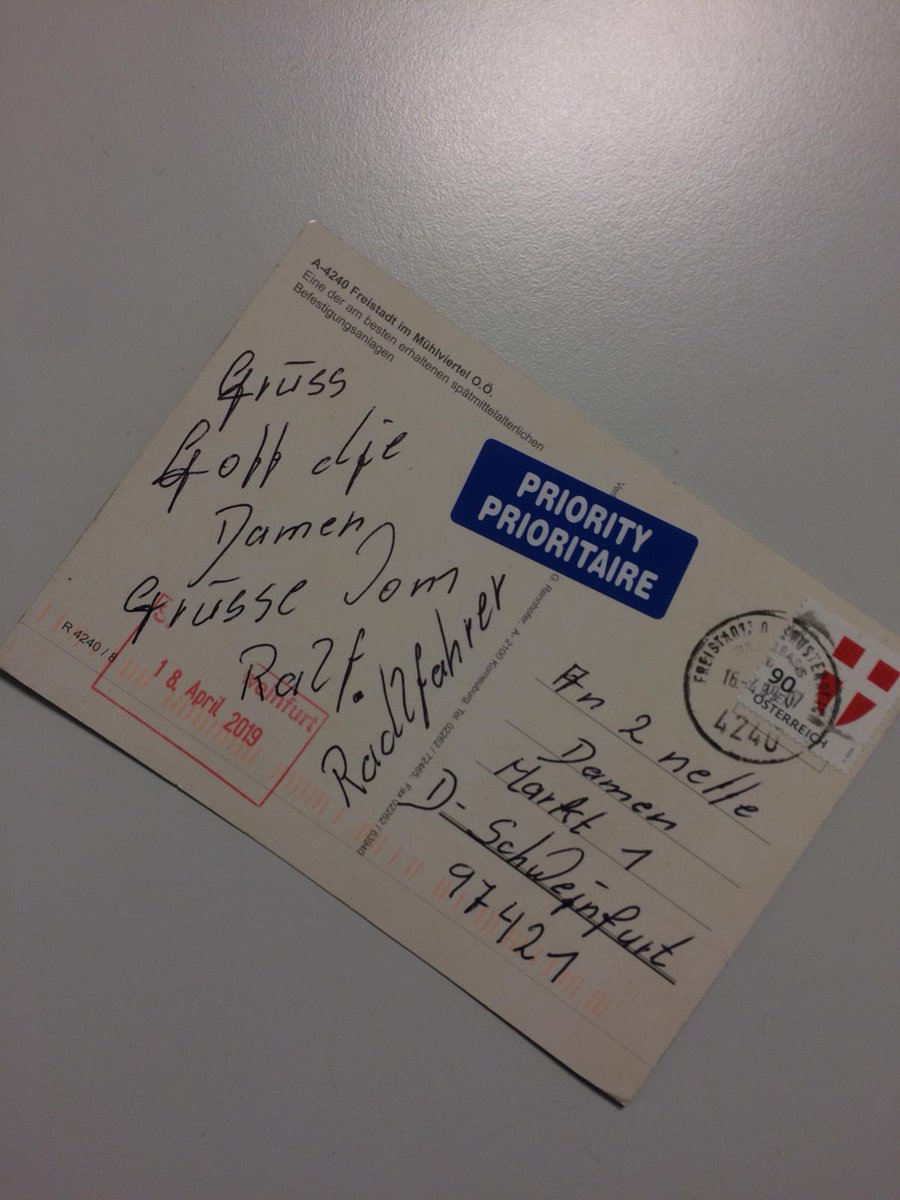 A-4240 Freistadt im Mühlviertel O.Ö.
Eine der am besten erhaltenen spätmittelalterlichen
Befestigungsanlagen
Grüss
Gott die
Damen
Grüsse vom
Ralf.
Radlfahrer
R 4240 / 8
18. April 2019
PRIORITY
PRIORITAIRE
G. Rennhofer, A- 2100 Korneuburg, Tel. 02262 / 72465, Fax 02262 / 63940
4240
90
ÖSTERREICH
An 2 nette
Damen
Markt 1
D- Schweinfurt
97421